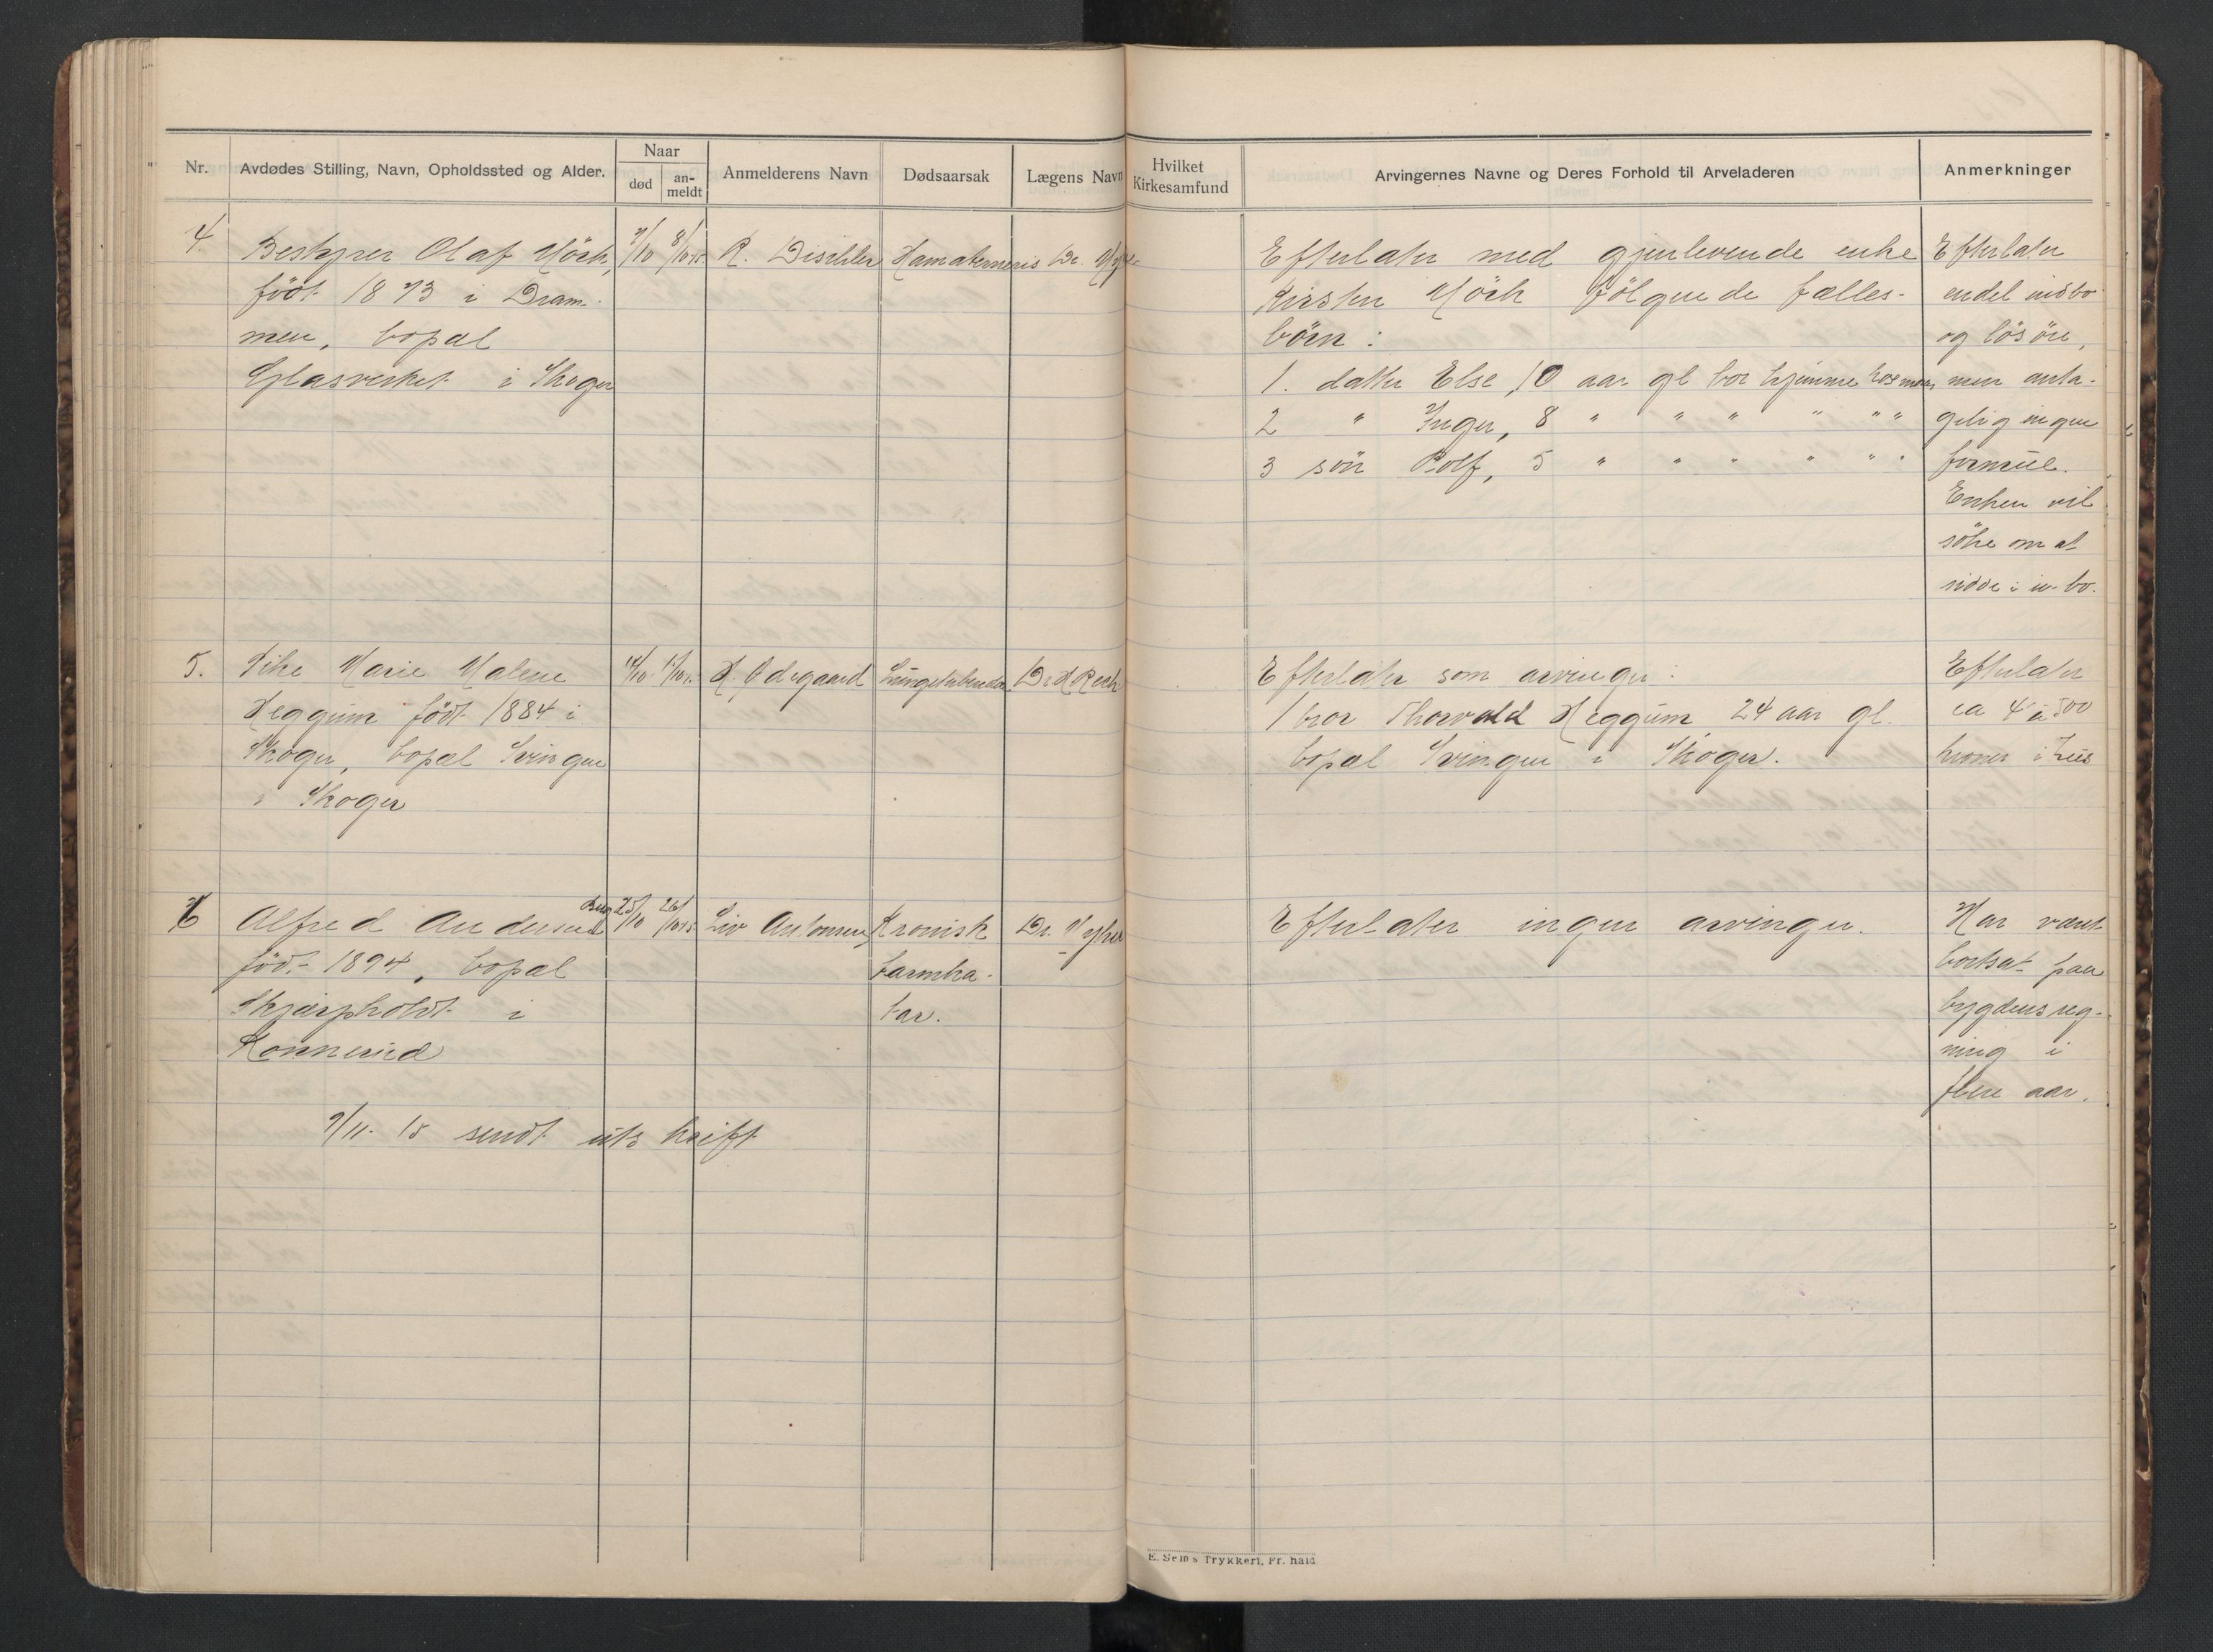 Nr.
Avdødes Stilling, Navn, Opholdssted og Alder.
Naar
død
an-
meldt
Anmelderens Navn
Dødsaarsak
Lægens Navn
Hvilket
Kirkesamfund
Arvingernes Navne og Deres Forhold til Arveladeren
Anmerkninger
4.
Bestyrer Olaf Mörk,
født 1873 i Dram-
men, bopæl
Glasverket i Skoger
7/10
8/10 15.
R. Dischler
Dr.
Efterlater med gjenlevende enke
Kirsten Mörk følgende fælles-
børn :
1. datter Else, 10 aar gl bor hjemme hos moren
2 " Inger, 8 " " " " " "
3 søn Rolf, 5 " " " " " "
Efterlater
endel indbo
og løsøre,
men anta-
gelig ingen
formue.
Enken vil
søke om at
sidde i u. bo.
5.
Pike Marie Malene
Heggum født 1884 i
Skoger, bopæl Svingen
i Skoger
14/10
H. Ødegaard
Lungetuberculose
Dr.
Efterlater som arvinger :
1 bror Thorvald Heggum, 24 aar gl.
bopæl Svingen i Skoger.
Efterlater
ca 4 à 500
kroner i hus
6
Alfred Andersen
født 1894, bopæl
Skjærpholdt i
Konnerud
25/10
26/10 15.
Liv Antonsen
Kronisk
tarmka-
tar.
Dr.
Efterlater ingen arvinger.
Har været
bortsat paa
bygdens reg-
ning i
flere aar.
9/11- 15 sendt utskrift
E. Sem's Trykkeri, Fr.hald